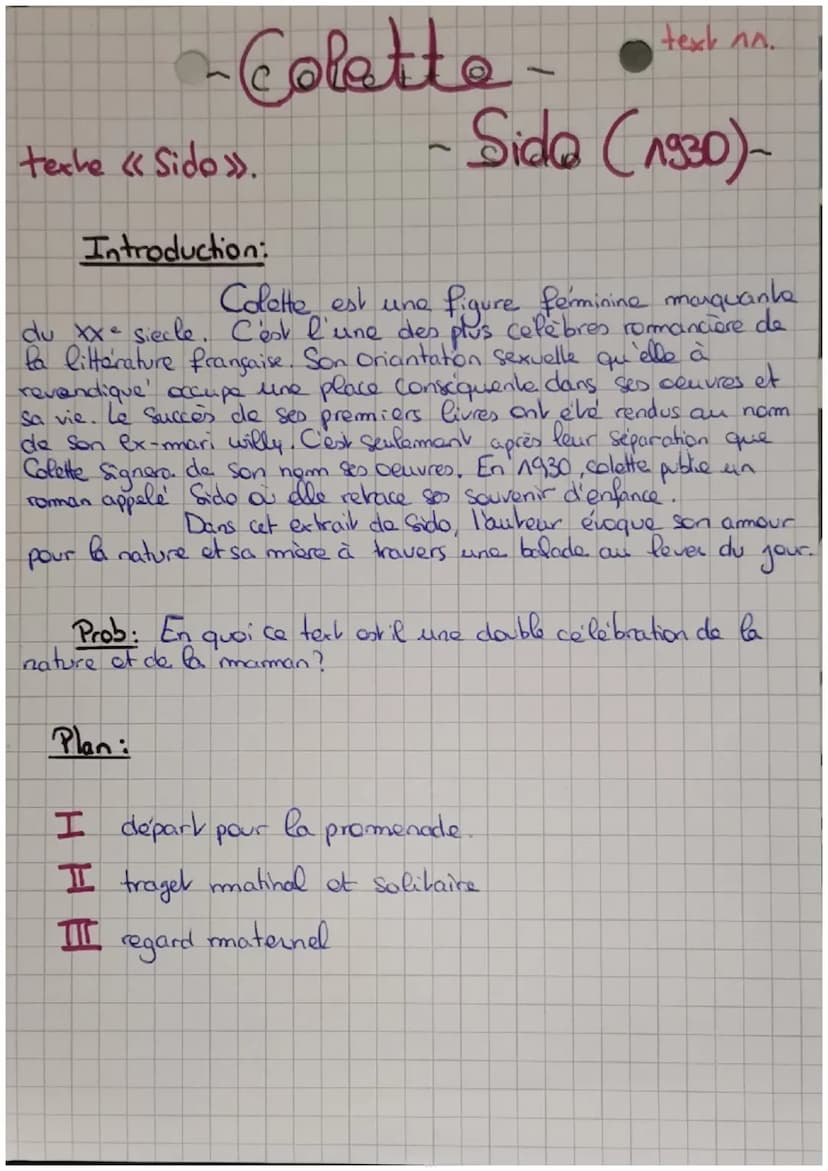 - Colette -
text 11.
- Sido (1930) -
texte « Sido ».
Introduction:
Colette est une figure féminine marquante
du XXe siecle. C'est l'une des plus celèbres romancière de
la littérature française. Son oriantation sexuelle qu'elle à
revandiqué occupe une place conséquente dans ses oeuvres et
sa vie. Le succès de ses premiers livres ont été rendus au nom
de son ex-mari willy. C'est seulement après leur séparation que
Colette signera de son nom ses oeuvres. En 1930, colette publie un
roman appelé Sido où elle retrace ses souvenir d'enfance.
Dans cet extrait de Sido, l'auteur évoque son amour
pour la nature et sa mère à travers une balade au lever du jour.
Prob: En quoi ce text est il une double célébration de la
nature et de la maman?
Plan:
I départ pour la promenade.
II traget matinal et solitaire
III regard maternel